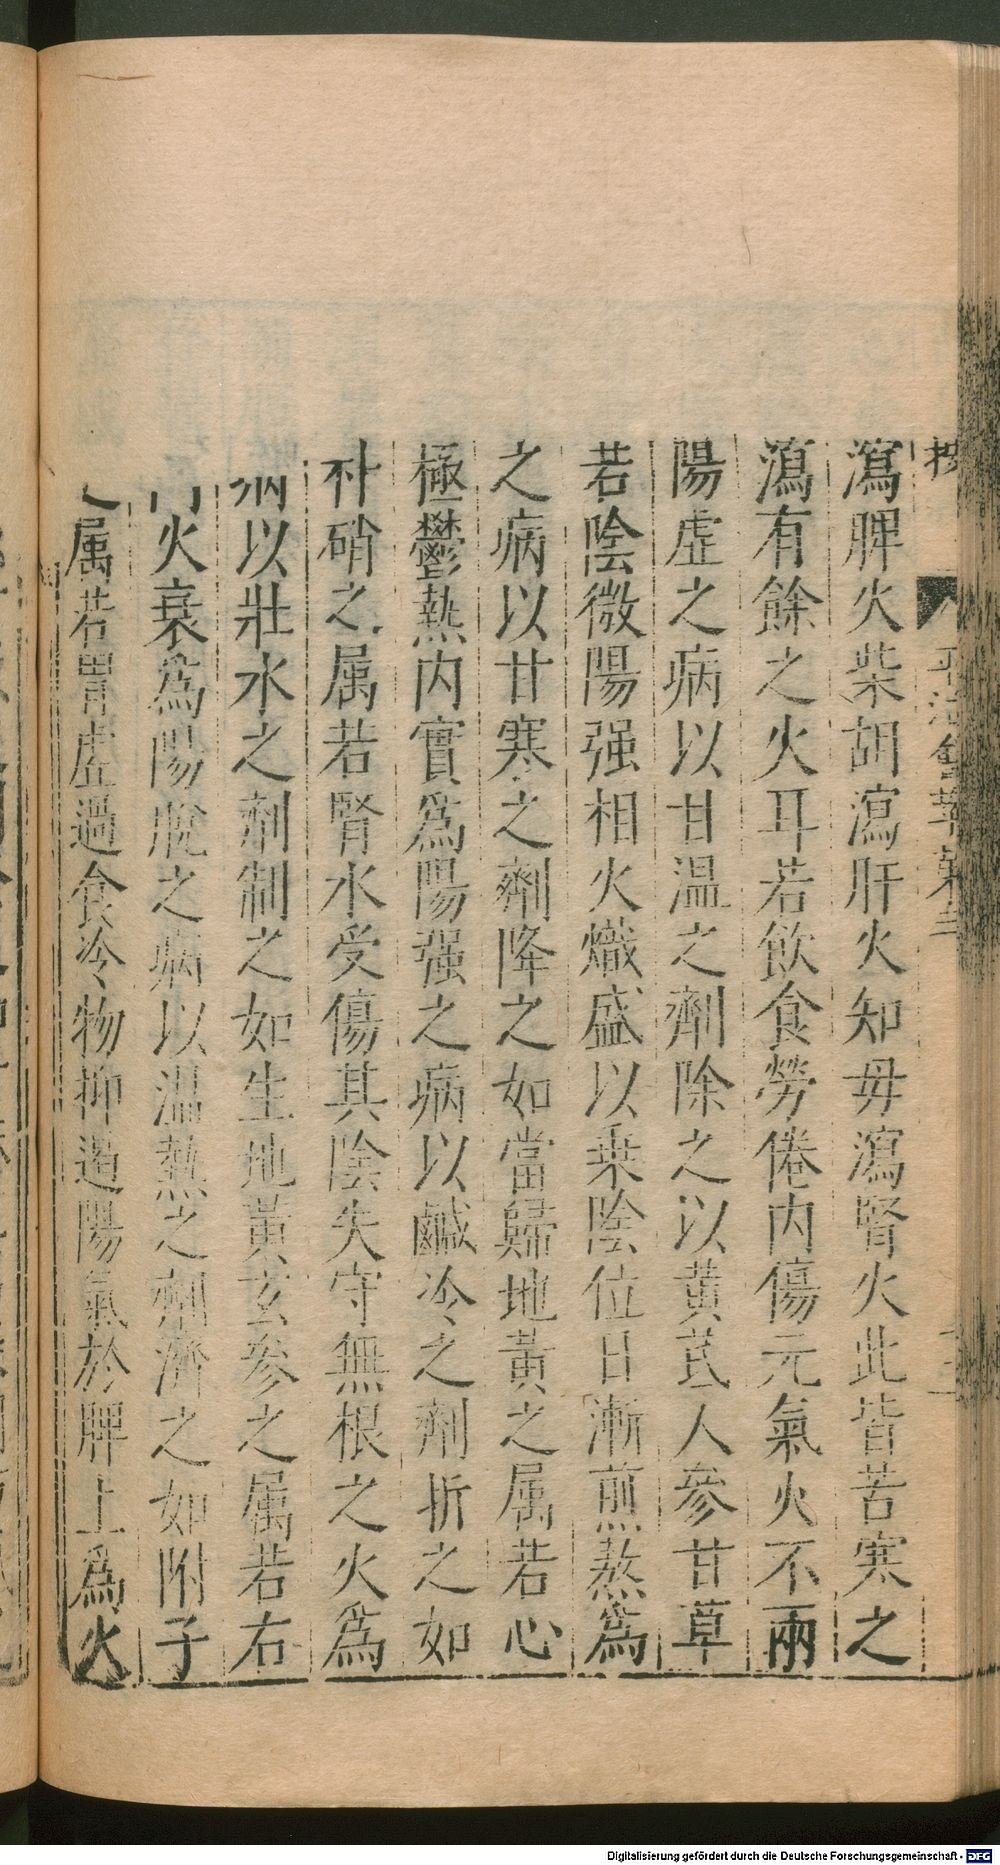 瀉脾火柴胡瀉肝火知母瀉腎火此皆苦寒之
瀉有餘之火耳若飲食勞倦内傷元氣火不兩
陽虛之病以甘温之劑除之以黄芪人參甘草
若陰微陽强相火熾盛以乗陰位日漸煎熬為
之病以甘寒之劑降之如當歸地黃之属若心
極鬱熱内實為陽强之病以鹹冷之劑折之如
朴硝之属若腎水受傷其陰失守無根之火為
病以壯水之劑制之如生地黃玄參之属若右
門火衰為陽脫之病以温熱之劑濟之如附子
属若胃虛過食冷物抑遏陽氣於脾土為火
Digitalisierung gefördert durch die Deutsche Forschungsgemeinschaft - DFG